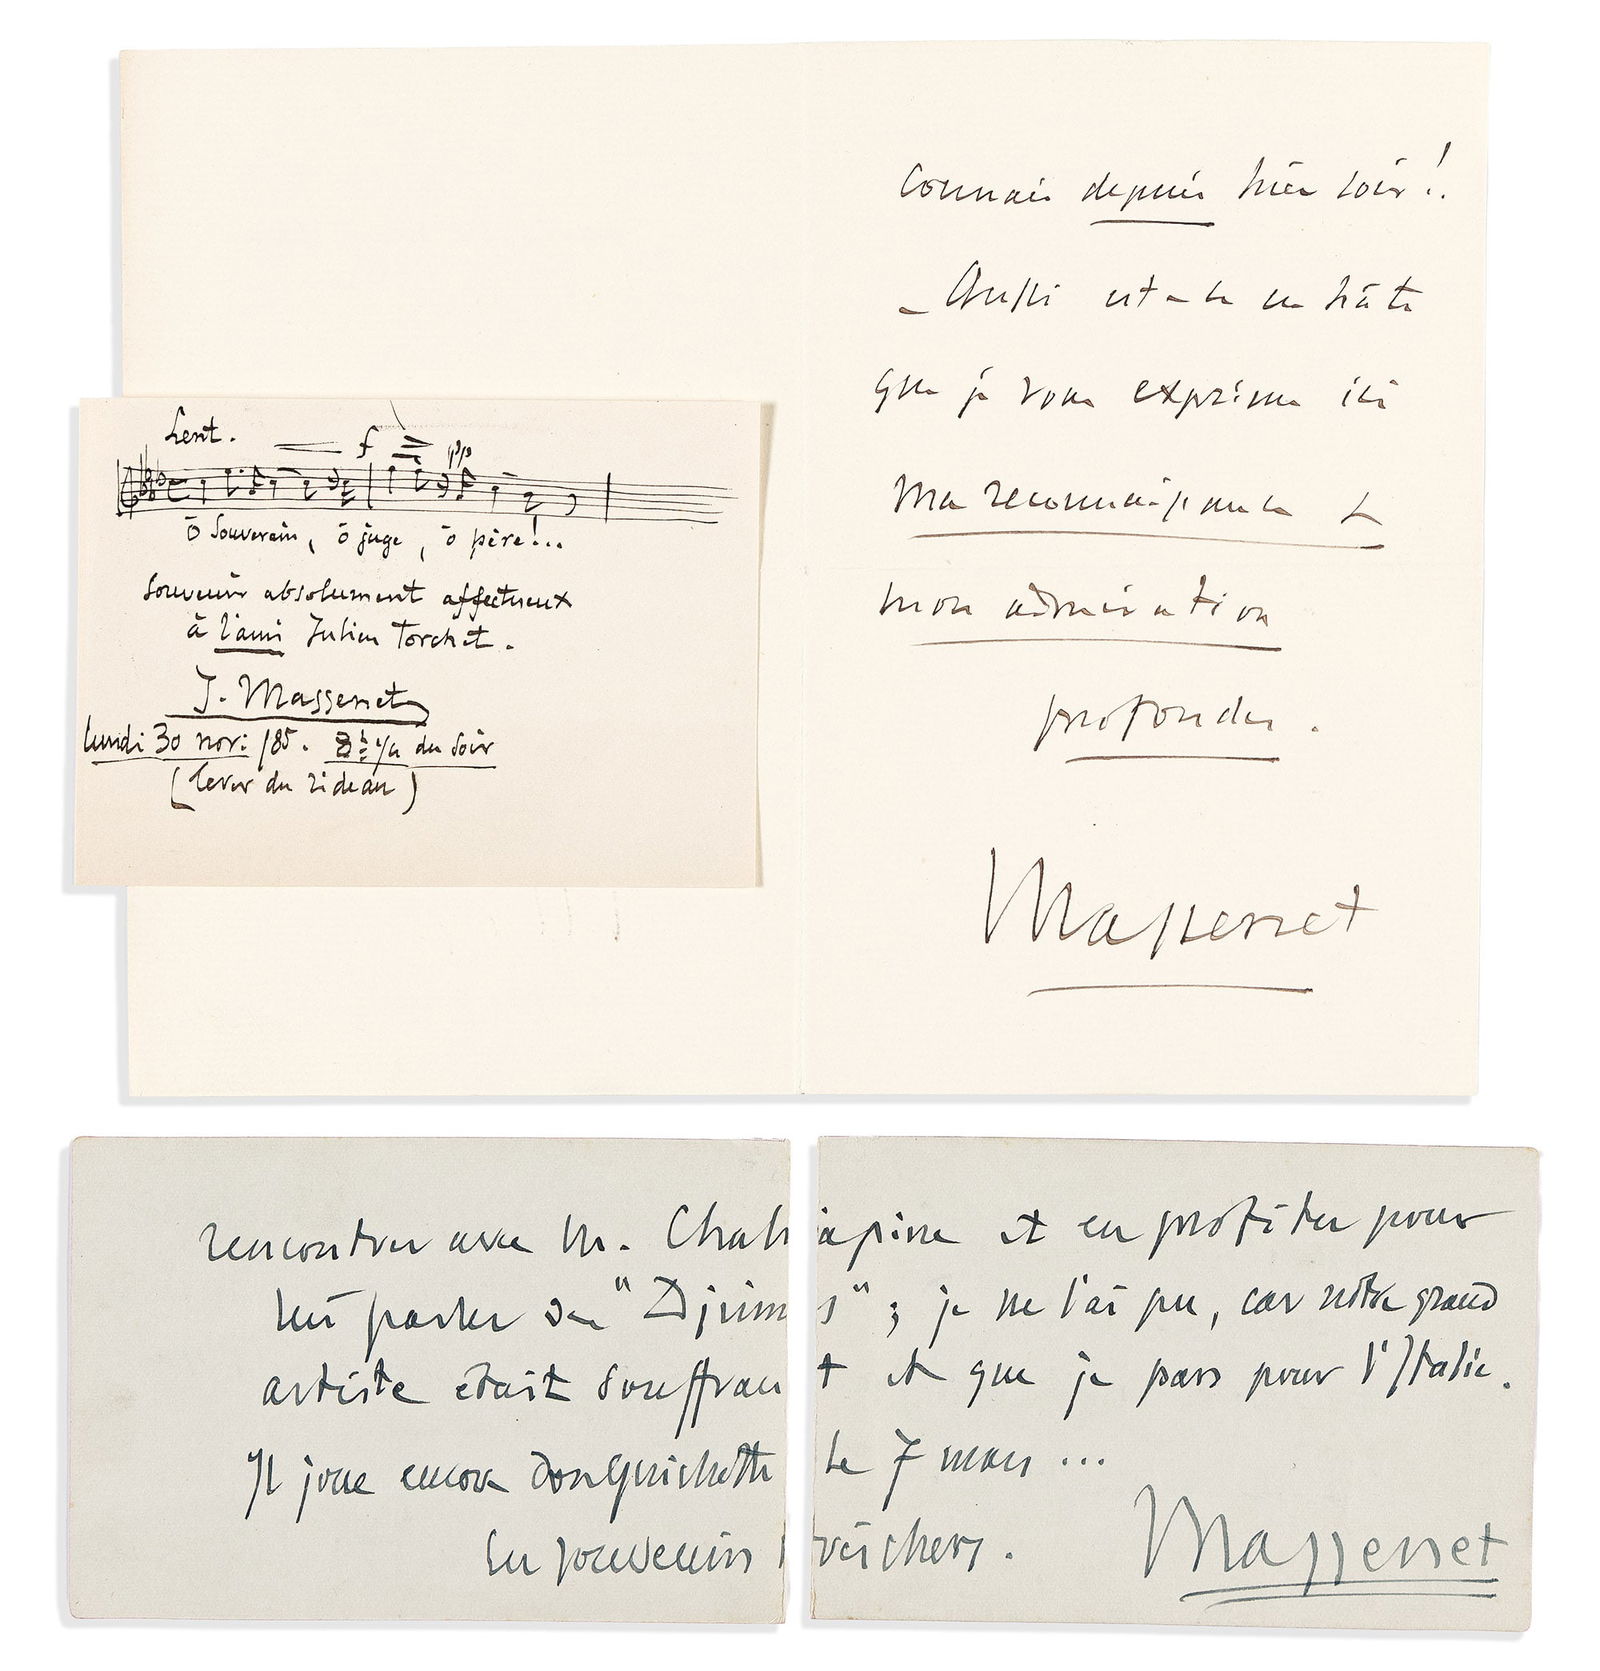 Lent.
f > ppp
ô Souverain, ô juge, ô père!...
Souvenir absolument affectueux
à l'ami Julien Torchet.
J. Massenet
lundi 30 nov: /85. 8h 1/4 du soir
(lever du rideau)
connais depuis hier soir!
_ Aussi est-ce en hâte
que je vous exprime ici
ma reconnaissance &
mon admiration
profondes.
Massenet
rencontrer avec M. Chaliapine et en profiter pour
lui parler de "Djinns"; je ne l'ai pu, car notre grand
artiste était souffrant et que je pars pour l'Italie.
Il joue encore Don Quichotte le 7 mars...
En souvenirs très chers. Massenet